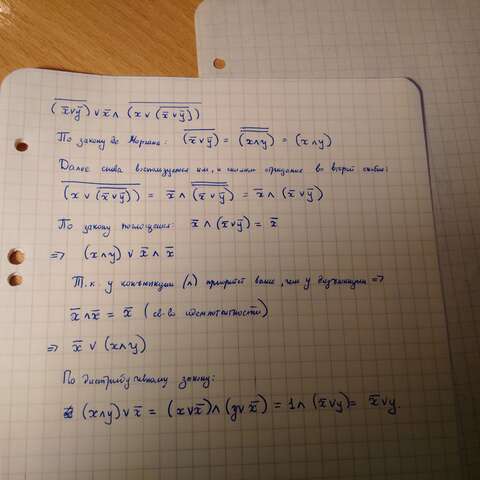 (x̅∨y̅)̅ ∨ x̅ ∧ (x ∨ (x̅∨y̅)̅)̅
По закону де Моргана: (x̅∨y̅)̅ = (x∧y)̿ = (x∧y)
Далее снова воспользуемся им, и снимем отрицание во второй скобке:
(x ∨ (x̅∨y̅)̅)̅ = x̅ ∧ (x̅∨y̅)̿ = x̅ ∧ (x̅∨y̅)
По закону поглощения: x̅ ∧ (x̅∨y̅) = x̅
=> (x∧y) ∨ x̅ ∧ x̅
Т.к. у конъюнкции (∧) приоритет выше, чем у дизъюнкции =>
x̅∧x̅ = x̅ (св-во идемпотентности)
=> x̅ ∨ (x∧y)
По дистрибутивному закону:
(x∧y)∨x̅ = (x∨x̅)∧(y∨x̅) = 1∧(x̅∨y) = x̅∨y.